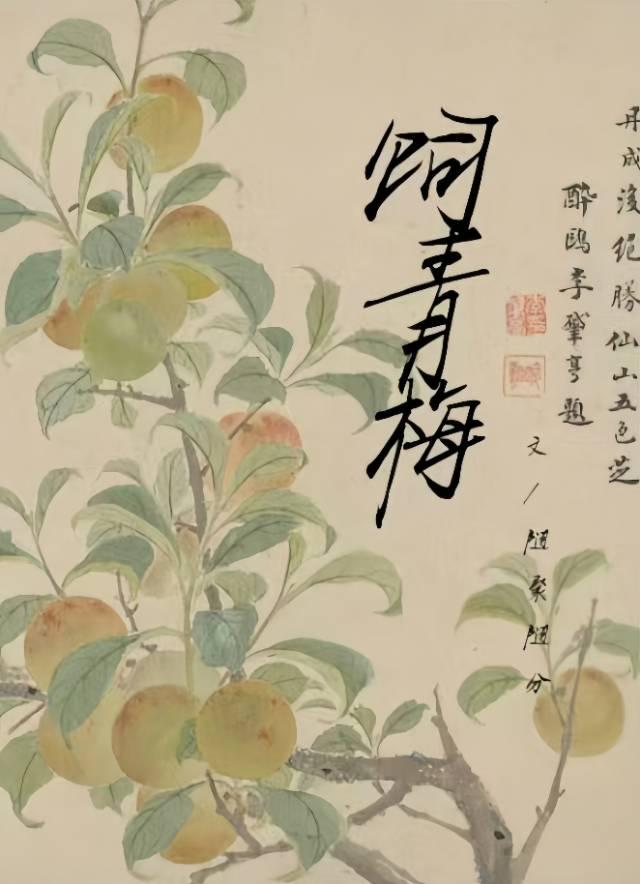 丹成後絕勝仙山五色芝
醉鷗李肇亨題
饲青梅
文/随聚随分